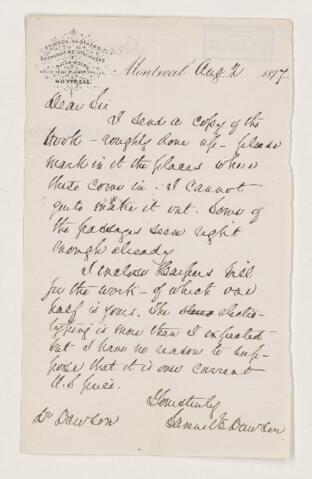 DAWSON BROTHERS
MONTREAL
Montreal Aug 2 1877.
Dear Sir
I send a copy of the
book - roughly done up - please
mark in it the places where
these come in. I cannot
quite make it out. Some of
the passages seem right
enough already
I inclose Harpers bill
for the work - of which one
half is yours. The electro-
typing is more than I expected
but I have no reason to sup-
pose that it is over current
U.S. price.
Yours truly
Samuel E Dawson
Dr Dawson